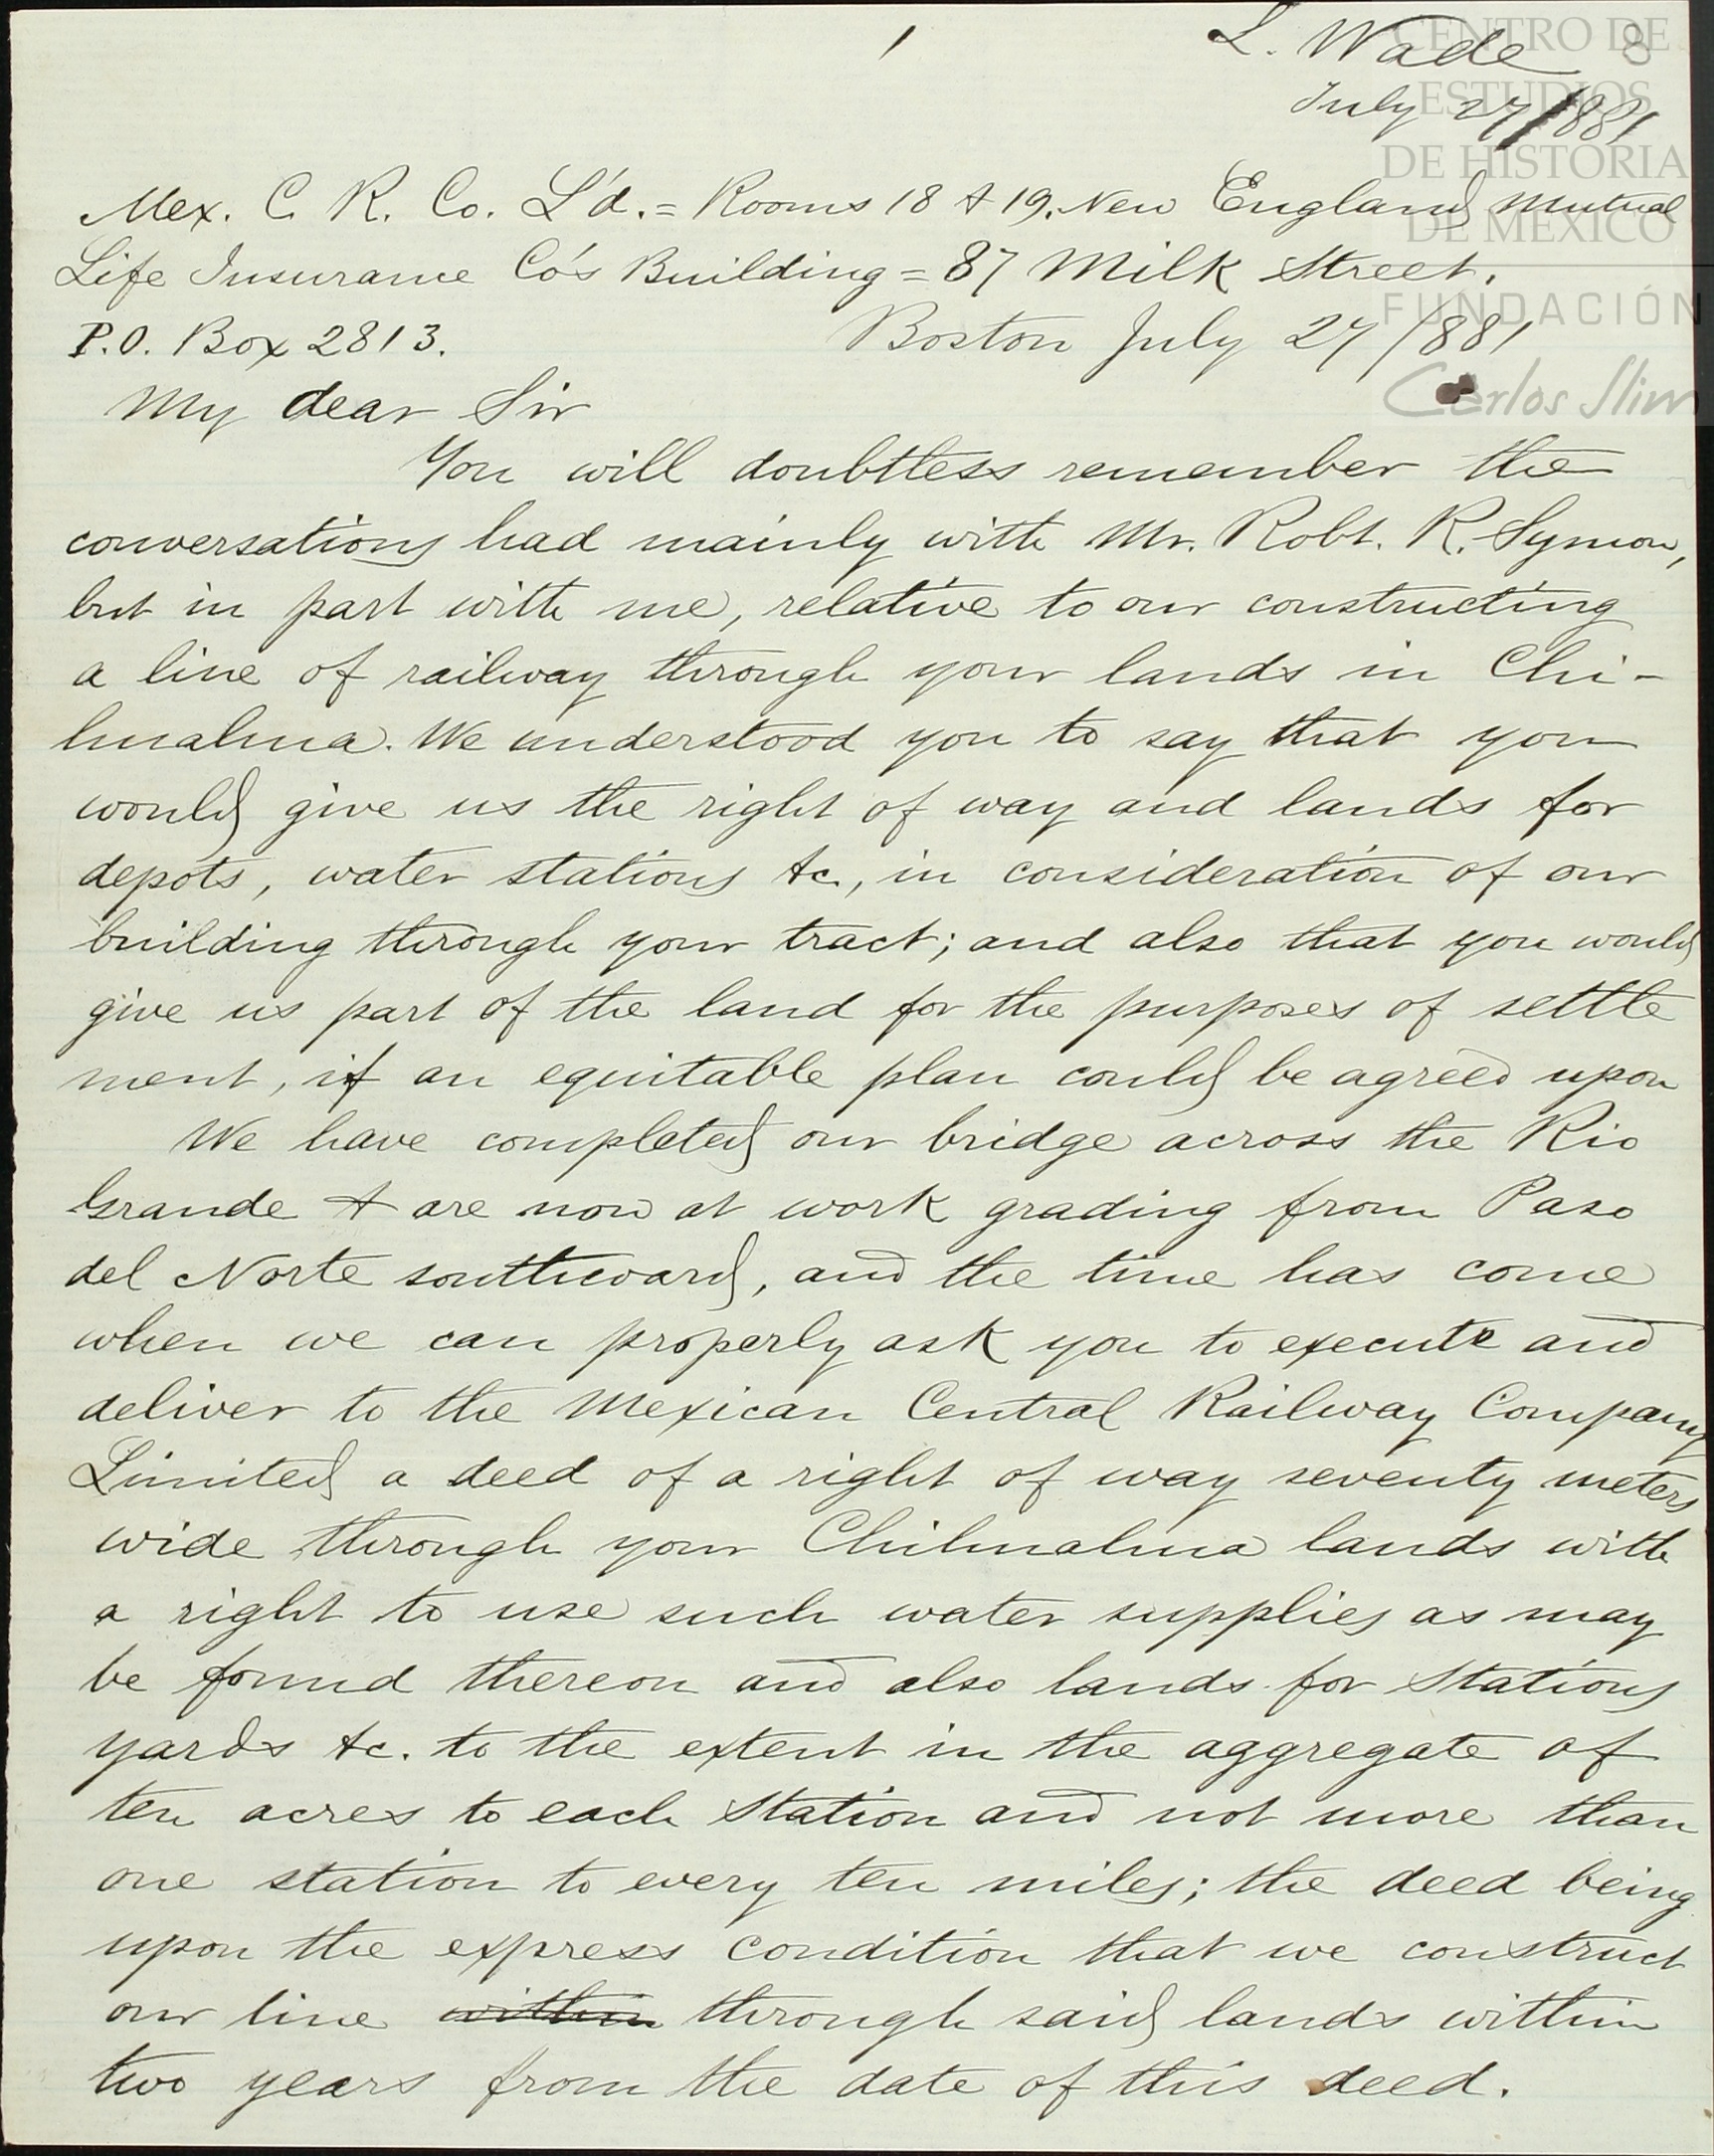 1
L. Wade 8
July 27/1881
CENTRO DE
ESTUDIOS
DE HISTORIA
DE MEXICO
FUNDACIÓN
Carlos Slim
Mex. C. R. Co. L'd. = Rooms 18 & 19. New England Mutual
Life Insurance Co's Building = 87 Milk Street.
P.O. Box 2813. Boston July 27/1881
My dear Sir
You will doubtless remember the
conversations had mainly with Mr. Robt. R. Symon,
but in part with me, relative to our constructing
a line of railway through your lands in Chi-
huahua. We understood you to say that you
would give us the right of way and lands for
depots, water stations &c., in consideration of our
building through your tract; and also that you would
give us part of the land for the purposes of settle
ment, if an equitable plan could be agreed upon
We have completed our bridge across the Rio
Grande & are now at work grading from Paso
del Norte southward, and the time has come
when we can properly ask you to execute and
deliver to the Mexican Central Railway Company
Limited a deed of a right of way seventy meters
wide through your Chihuahua lands with
a right to use such water supplies as may
be found thereon and also lands for Stations
yards &c. to the extent in the aggregate of
ten acres to each Station and not more than
one station to every ten miles; the deed being
upon the express condition that we construct
our line within through said lands within
two years from the date of this deed.